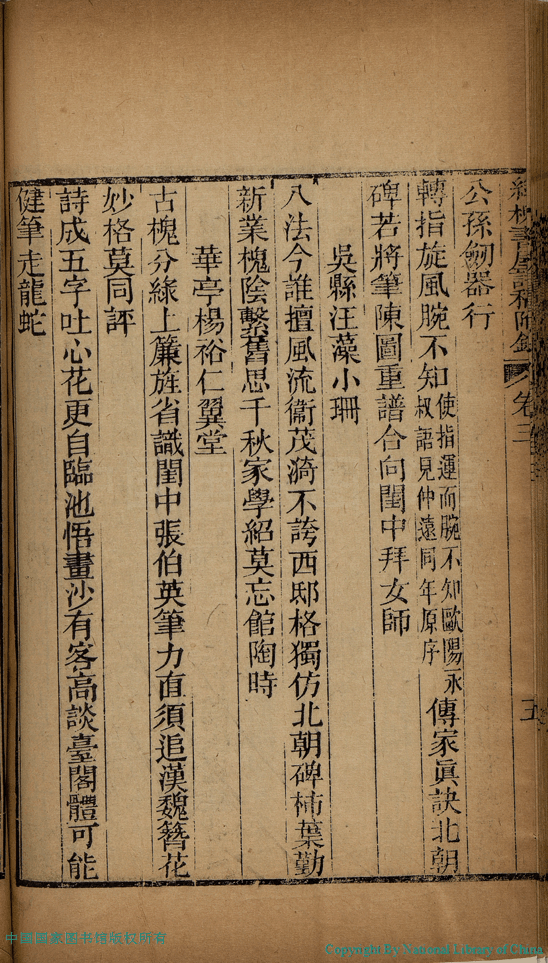 綠槐書屋詩稿附錄 卷三 五
公孫劒器行
轉指旋風腕不知使指運而腕不知歐陽永叔語見仲遠同年原序傳家眞訣北朝
碑若將筆陳圖重譜合向閨中拜女師
吳縣汪藻小珊
八法今誰擅風流衞茂漪不誇西邸格獨仿北朝碑柿葉勤
新業槐陰繫舊思千秋家學紹莫忘館陶時
華亭楊裕仁翼堂
古槐分綠上簾旌省識閨中張伯英筆力直須追漢魏簪花
妙格莫同評
詩成五字吐心花更自臨池悟畫沙有客高談臺閣體可能
健筆走龍蛇
中國國家图书馆版权所有
Copyright By National Library of China